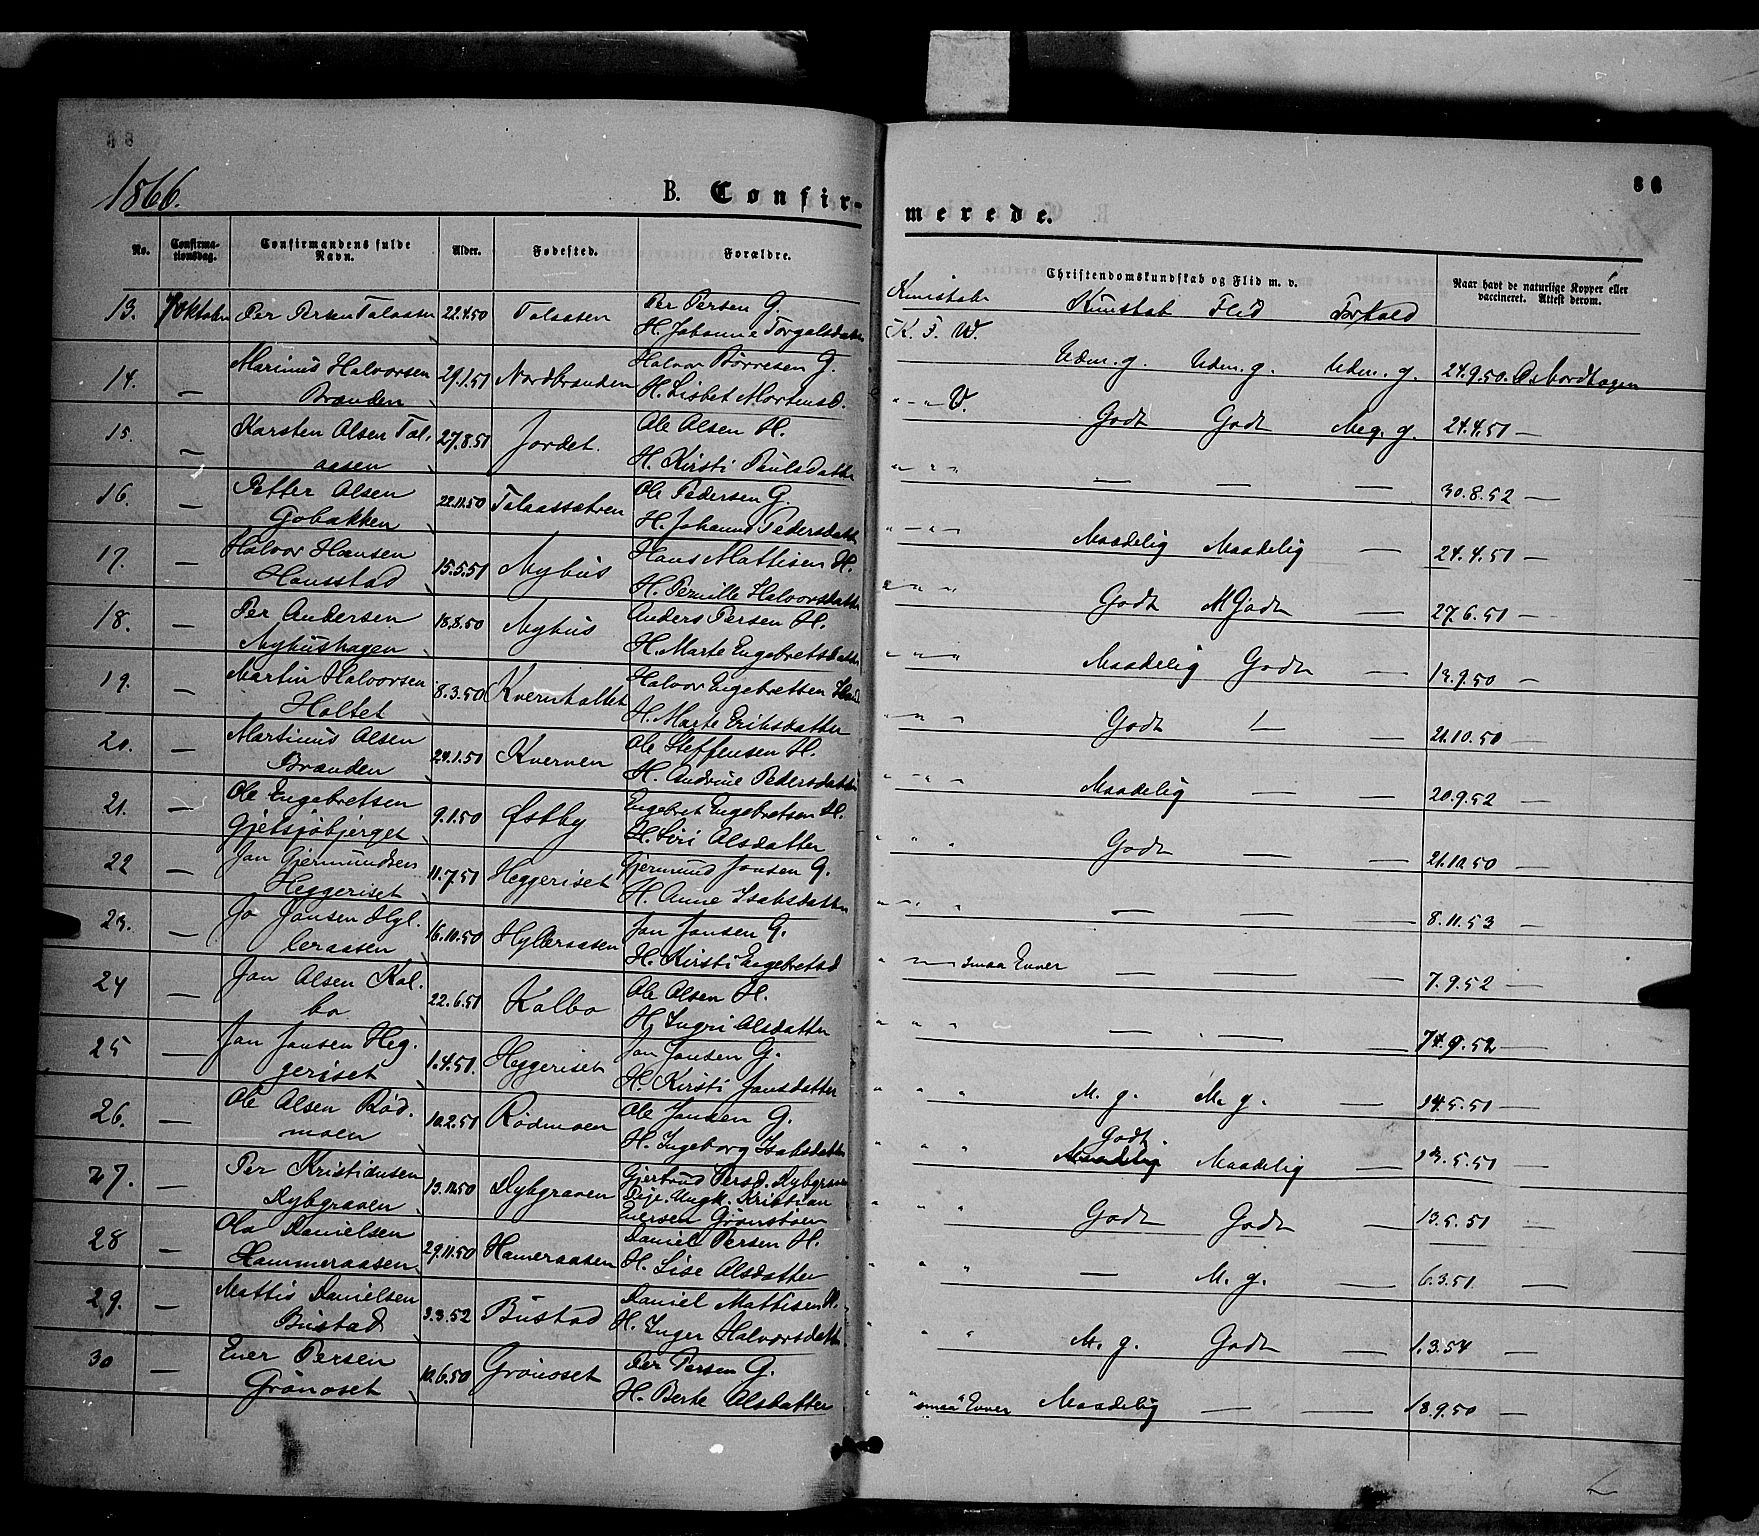 1866.
B. Confir-
merede.
86
No. Confirmationsdag. Confirmandens fulde Navn. Alder. Fødested. Forældre.
Christendomskundskab og Flid m. v.
Naar havt de naturlige Kopper eller vaccineret. Attest derom.
Kundskab Flid Forhold
13. 7 Oktober Per Persen Talaasen 22.4.50 Talaasen Per Persen G.
H. Johanne Torgalsdatter K. F. W. Udm. g. Udm. g. Udm. g. 24.9.50. Osbordhagen
14. — Marinus Halvorsen 29.1.51 Nordbranden Halvor Børresen G.
Brænden H. Lisbet Mortensd. " — " V. Godt Godt Meg. g. 24.4.51 —
15. — Karsten Olsen Tal- 27.8.51 Jordet. Ole Olsen H.
aasen H. Kirsti Paulsdatter " " " — — — 30.8.52 —
16. — Petter Olsen 22.11.50 Talaassætren Ole Pedersen G.
Gobakken H. Johanne Pedersdatter " — " Maadelig Maadelig — 24.4.51 —
17. — Halvor Hansen 15.5.51 Nyhus Hans Mattisen H.
Hansstad H. Pernille Halvorsdatter " " " Godt M Godt — 27.6.51 —
18. — Per Andersen 18.8.50 Nyhus Anders Persen H.
Nyhushagen H. Marte Engebretsdatter " " " Maadelig Godt — 13.9.50 —
19. — Martin Halvorsen 8.3.50 Kvernholtet Halvor Engebretsen
Holtet H. Marte Eriksdatter " " " Godt — — 21.10.50 —
20. — Martinus Olsen 29.1.51 Kvernen Ole Steffensen H.
Brænden H. Andrine Pedersdatter " " " Maadelig — — 20.9.52 —
21. — Ole Engebretsen 9.1.50 Østby Engebret Engebretsen H.
Gjetsjøbjerget H. Siri Olsdatter " " Godt — — 21.10.50 —
22 — Jon Gjermundsen 11.7.51 Heggeriset Gjermund Jonsen G.
Heggeriset H. Anne Isaksdatter " " " — — — 8.11.53 —
23. — Jo Jonsen Hyl- 16.10.50 Hylleraasen Jon Jonsen G.
leraasen H. Kirsti Engebretsd " — smaa Evner — — — 7.9.52 —
24 — Jon Olsen Kol- 22.6.51 Kolbo Ole Olsen H.
bo H. Ingri Olsdatter " " " — — — 14.9.52 —
25 — Jon Jonsen Heg- 1.4.51. Heggeriset Jon Jonsen G.
geriset H. Kirsti Jonsdatter " " M. g. M. g. — 14.5.51 —
26. — Ole Olsen Rød- 10.2.51 Rødmoen Ole Jonsen G.
moen H. Ingeborg Isaksdatter " " Godt Maadelig Maadelig — 13.5.51 —
27. — Per Kristiansen 13.11.50 Dybgraven Gjertrud Persd. Dybgraven
Dybgraven Pige. Ungk. Kristian
Evensen Grønstøen " " Godt Godt — 13.5.51 —
28 — Ola Danielsen 29.11.50 Hameraasen Daniel Persen H.
Hammeraasen H. Lise Olsdatter " " — M. g. — 6.3.51 —
29. — Mattis Danielsen 3.3.52 Bustad Daniel Mattisen H.
Bustad H. Inger Halvorsdatter " " M. g. Godt — 1.3.54 —
30 — Ener Persen 10.6.50 Grønoset Per Persen G.
Grønoset H. Berte Olsdatter " " smaa Evner Maadelig — — 18.9.50 —